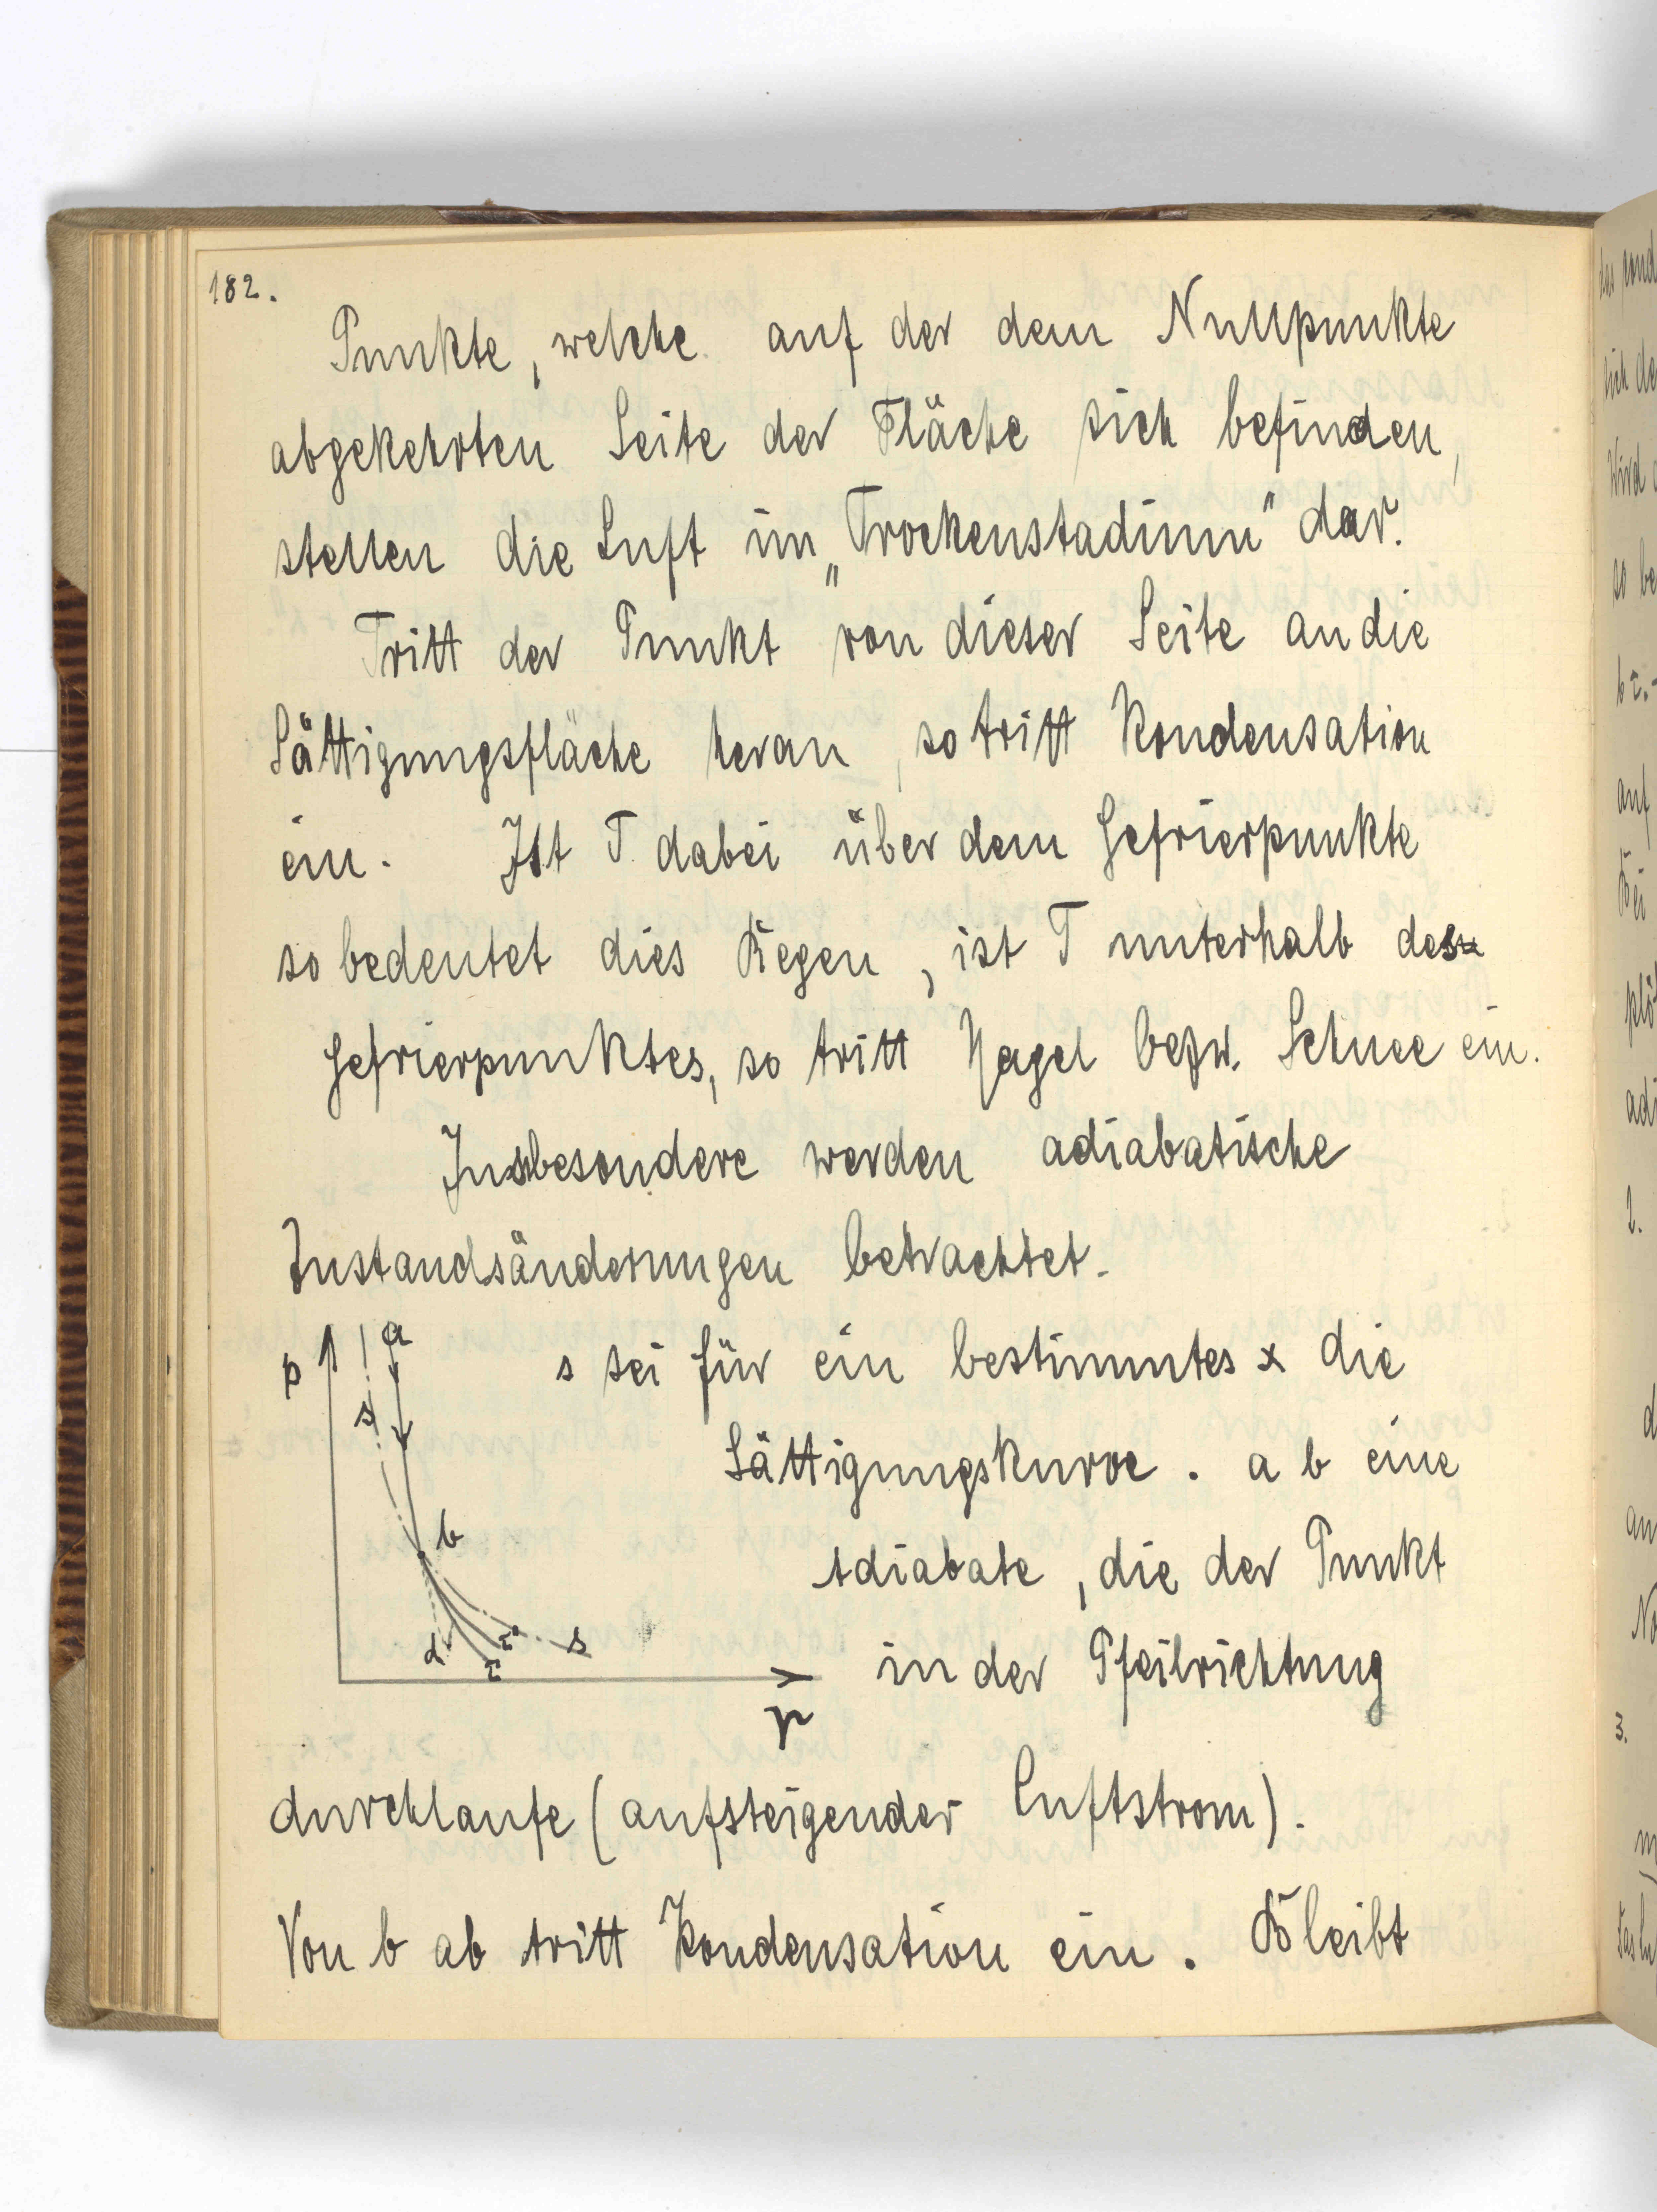 182.
Punkte, welche auf der dem Nullpunkte
abgekehrten Seite der Fläche sich befinden,
stellen die Luft im „Trockenstadium" dar.
Tritt der Punkt von dieser Seite an die
Sättigungsfläche heran, so tritt Kondensation
ein. Ist T dabei über dem Gefrierpunkte
so bedeutet dies Regen, ist T unterhalb des
Gefrierpunktes, so tritt Hagel bezw. Schnee ein.
Insbesondere werden adiabatische
Zustandsänderungen betrachtet.
p
a
s
b
d
τ
τ'
s
v
s sei für ein bestimmtes x die
Sättigungskurve. a b eine
Adiabate, die der Punkt
in der Pfeilrichtung
durchlaufe (aufsteigender Luftstrom).
Von b ab tritt Kondensation ein. Bleibt
das
sich
Wird
so be
auf
Bei
2.
3.